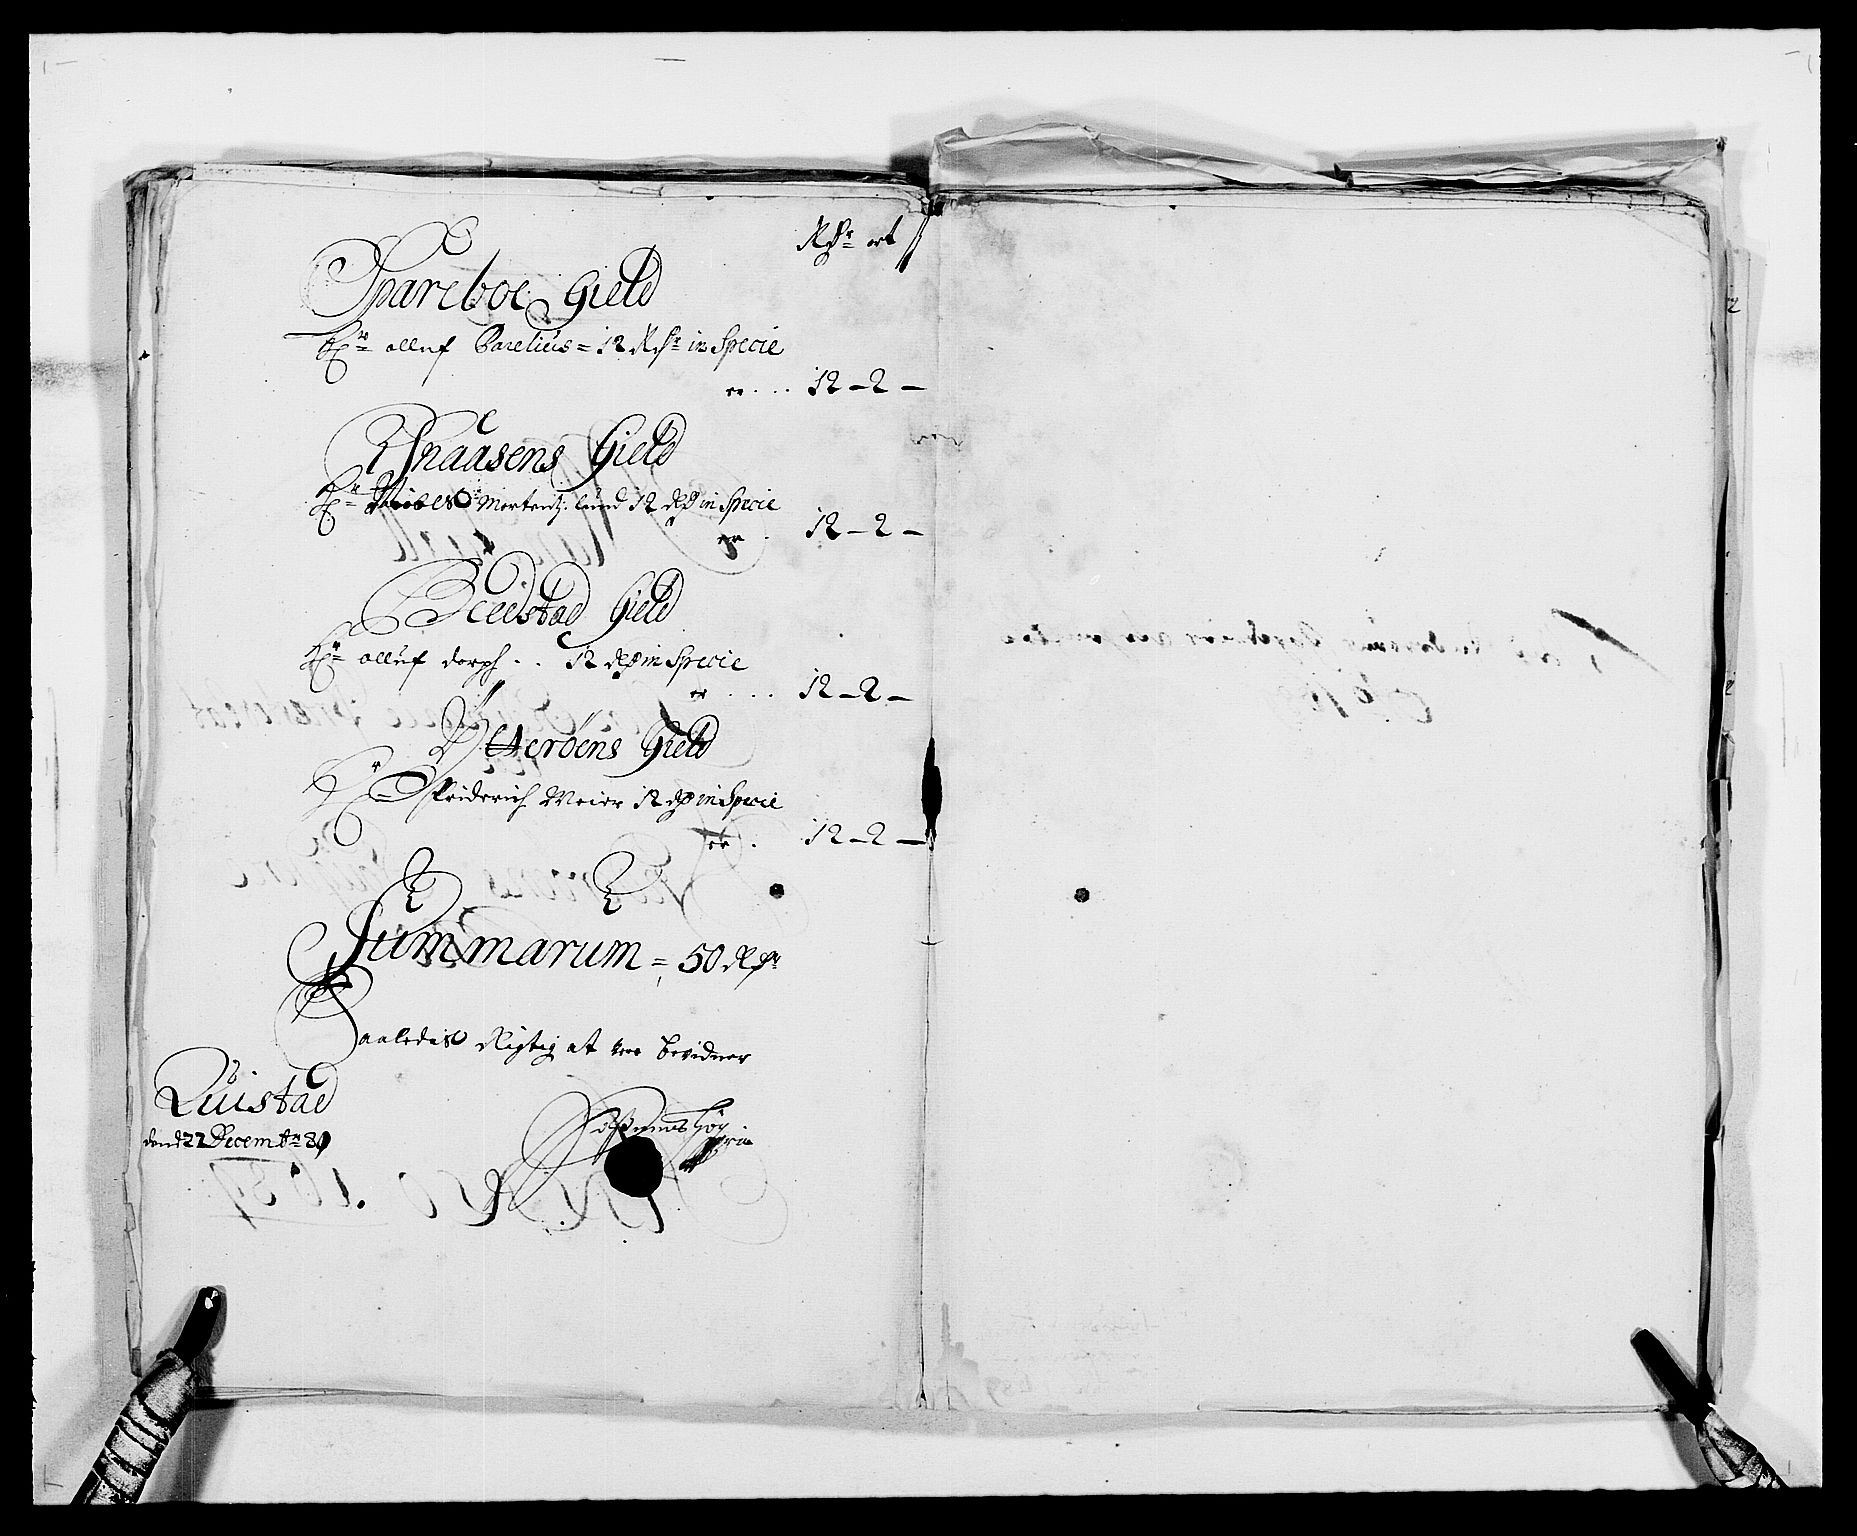 Rdr ort
Spareboe Gield
Hr olluf Parelius = 12 Rdr in Specie
er . . . 12 – 2 –
Snaasens Gield
Hr Mortentz. Lund 12 Rd in Specie
er . 12 – 2 –
Beedstad Gield
Hr olluf dorph . . 12 Rd in Specie
er . . . . 12 – 2 –
Ytterøens Gield
Hr Friderich Meier 12 Rd in Specie
er . 12 – 2 –
Summarum = 50 Rdr
Saaledis Rigtig at were bevidner
Quistad
dend 22 Decembr 89